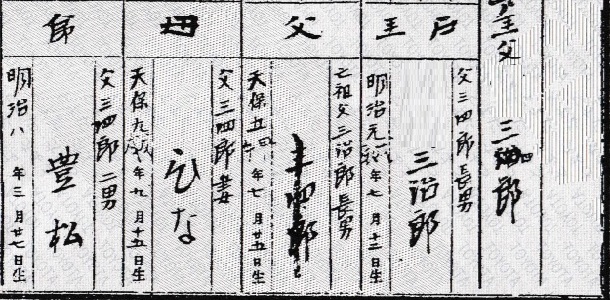 主父
三四郎
戸主
父三四郎長男
三治郎
明治元年七月十二日生
父
亡祖父三治郎長男
三四郎
天保五年七月廿五日生
母
父三四郎妻
ひな
天保九年九月十五日生
弟
父三四郎二男
豊松
明治八年三月廿七日生